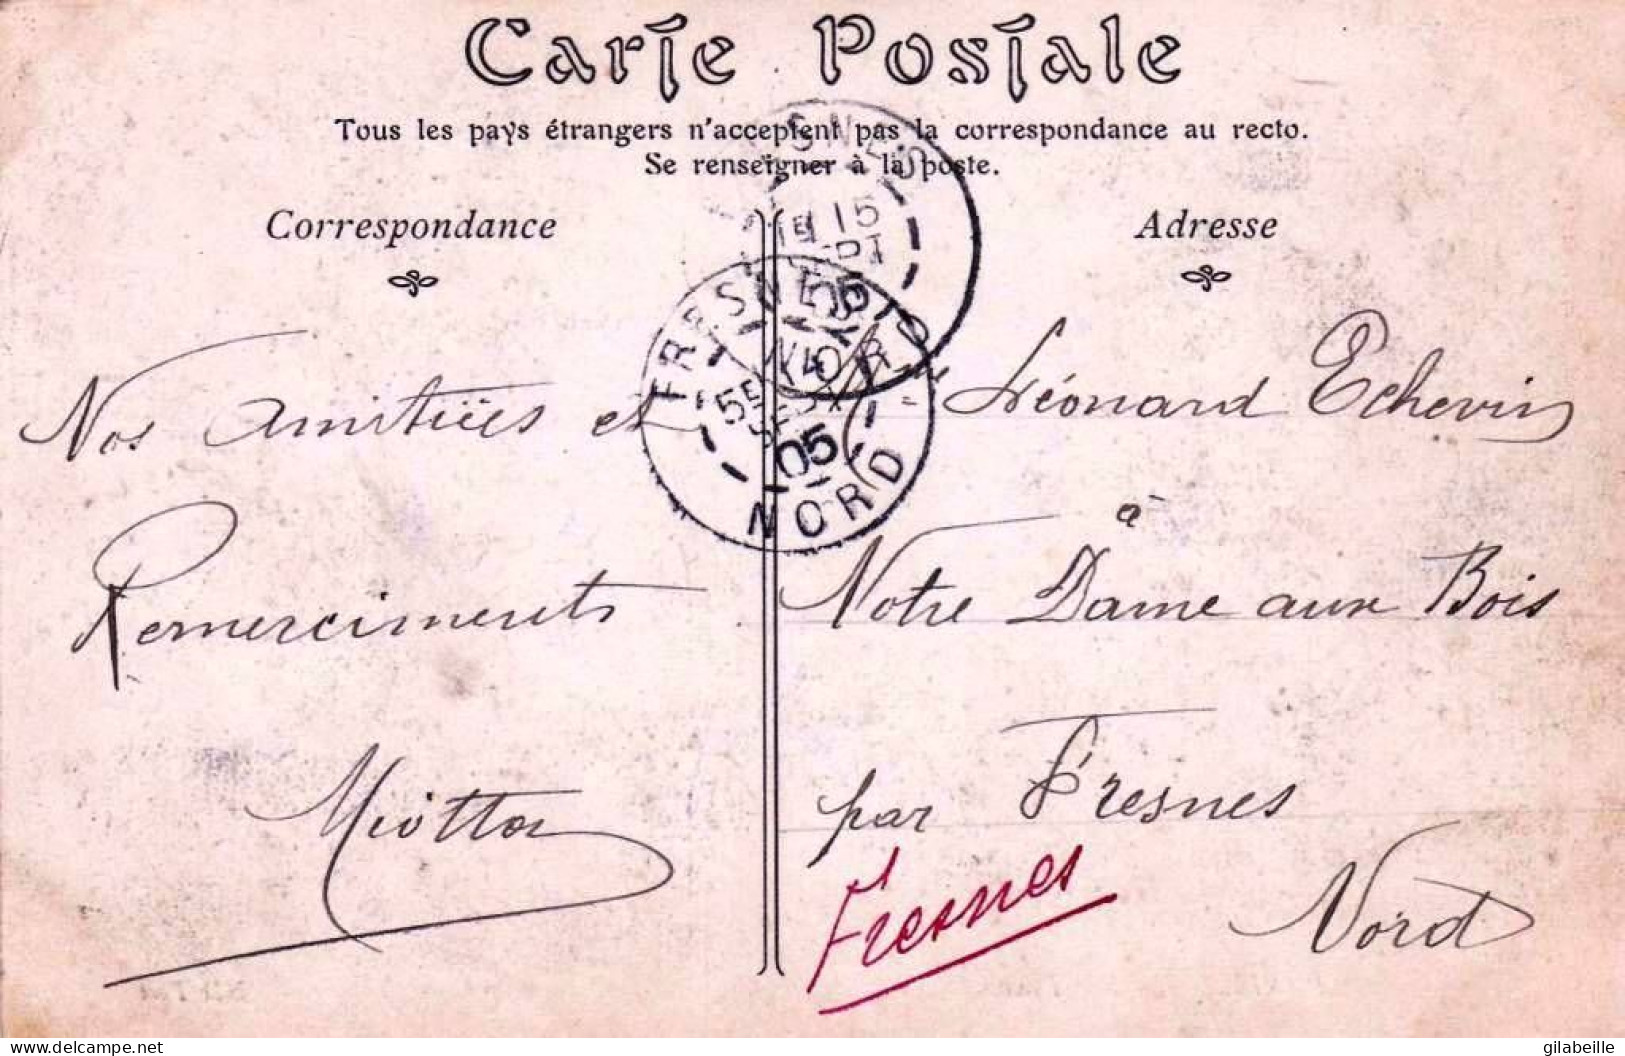 Carte Postale
Tous les pays étrangers n'acceptent pas la correspondance au recto.
Se renseigner à la poste.
Correspondance
Nos Amitiées et
Remerciments
Miotton
Adresse
Léonard Echevin
à
Notre Dame aux Bois
par Fresnes
Fresnes
Nord
SNES
15
05
FRESNES
05
NORD
gilabeille
delcampe.net